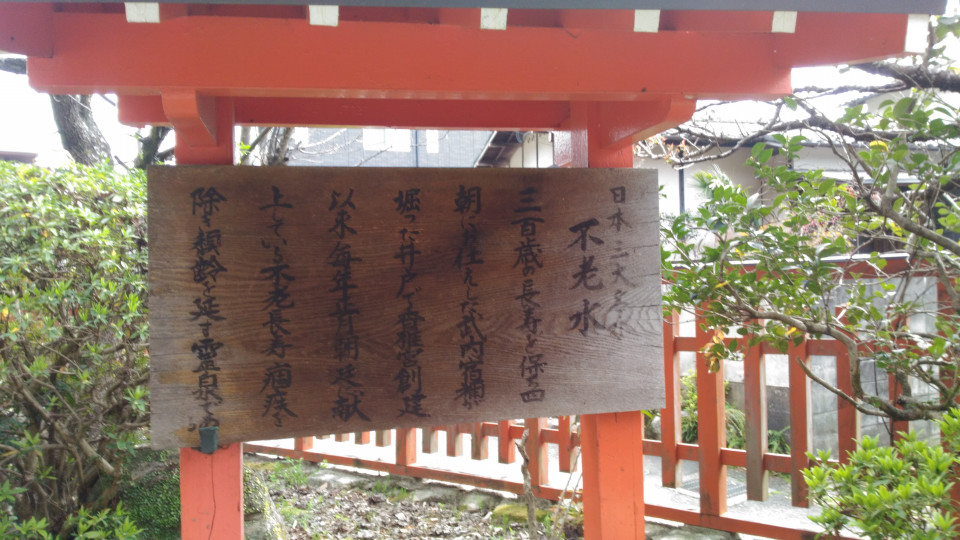 日本三大
不老水
三百歳の長寿を保ち四
朝に仕えした武内宿禰が
堀った井戸で香椎宮創建
以来毎年正月朝廷献
上している不老長寿痼疾を
除き頽齢を延す霊泉で